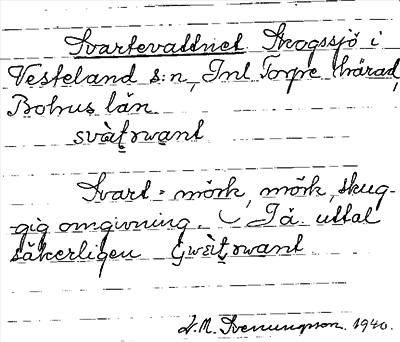 Svartevattnet Skogssjö i
Vesteland s:n, Inl Torpe härad,
Bohus län
svàt̯rwant
Svart = mörk, mörk, skug-
gig omgivning. Få uttal
säkerligen
L.M. Svenungson. 1940.